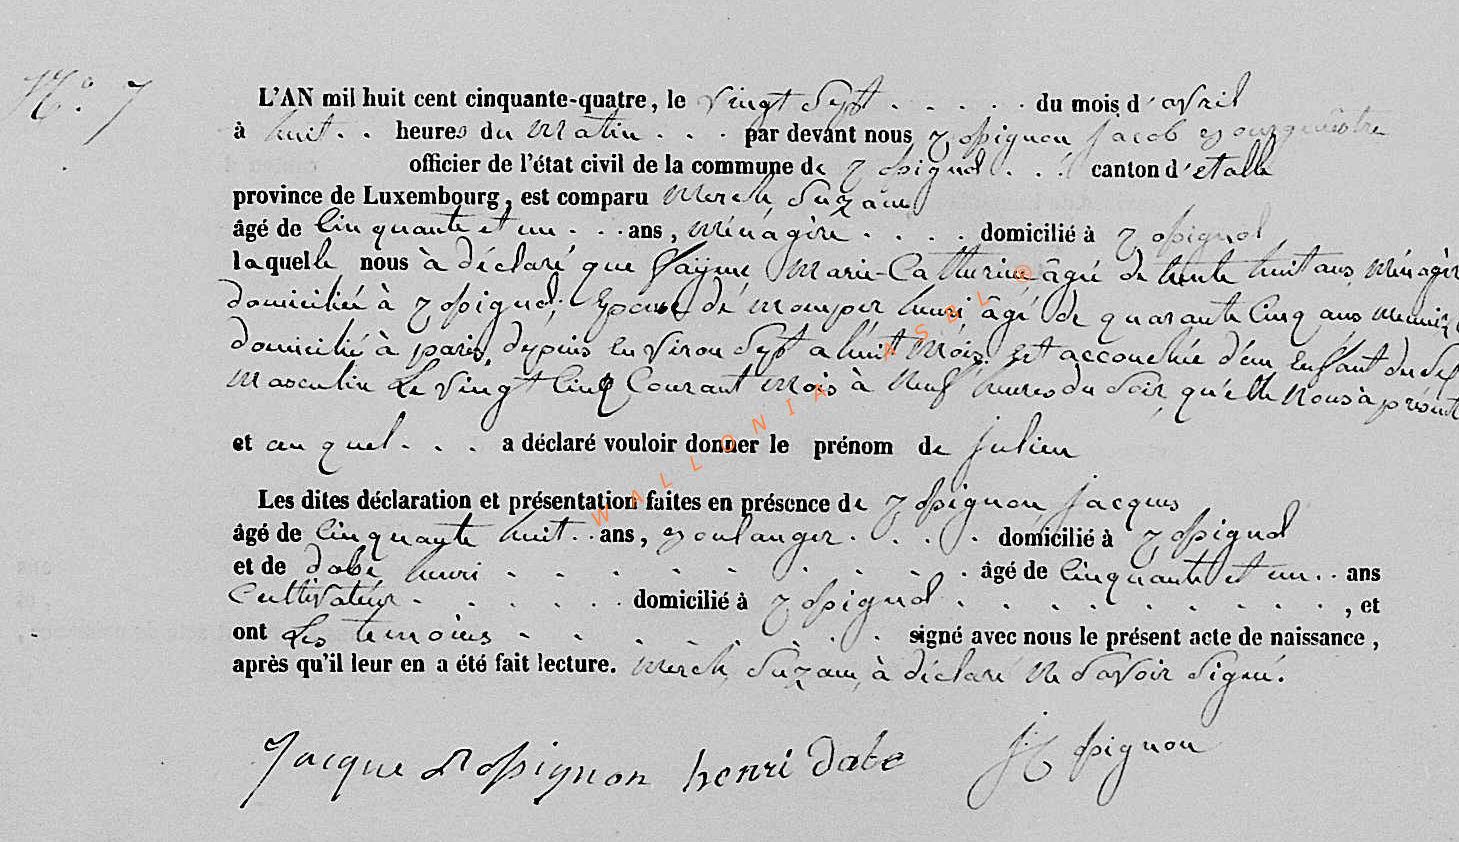 N.° 7
L'AN mil huit cent cinquante-quatre, le vingt Sept . . . . . du mois d'avril
à huit . . heures du matin . . . par devant nous Rossignon jacob Bourguemêstre
officier de l'état civil de la commune de Rossignol . . . canton d'etalle
province de Luxembourg, est comparu Merch, Suzane
âgé de Cinquante et un . . . ans, ménagère . . . . domicilié à Rossignol
laquelle nous à déclaré que Marie-Catherine âgée de trente huit ans, ménagère
domiciliée à Rossignol, Epouse de momper henri âgé de quarante Cinq ans
domicilié à paris, depuis environ Sept a huit mois. est accouchée d'un Enfant du Sexe
masculin Le vingt Cinq Courant mois à neuf heures du Soir, qu'elle Nous à présenté
et au quel . . . a déclaré vouloir donner le prénom de julien
Les dites déclaration et présentation faites en présence de Rossignon jacques
âgé de Cinquante huit . . ans, Boulanger . . . . domicilié à Rossignol
et de dabe henri . . . . . . . . . âgé de Cinquante et un . . ans
Cultivateur . . . . . . domicilié à Rossignol . . . . . . . . . . , et
ont Les temoins . . . . . . . . signé avec nous le présent acte de naissance,
après qu'il leur en a été fait lecture. Merch, Suzane, à déclaré ne Savoir Signé.
Jacque Rossignon henri dabe J Rossignon
WALLONIA ASBL ®